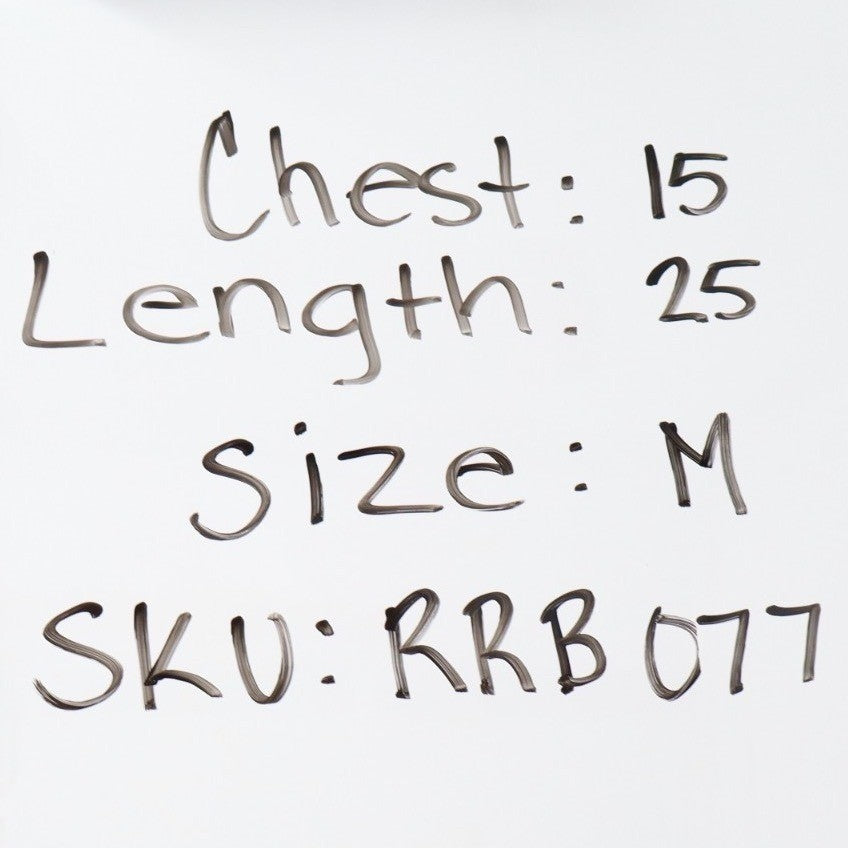 Chest: 15
Length: 25
Size: M
SKU: RRB 077